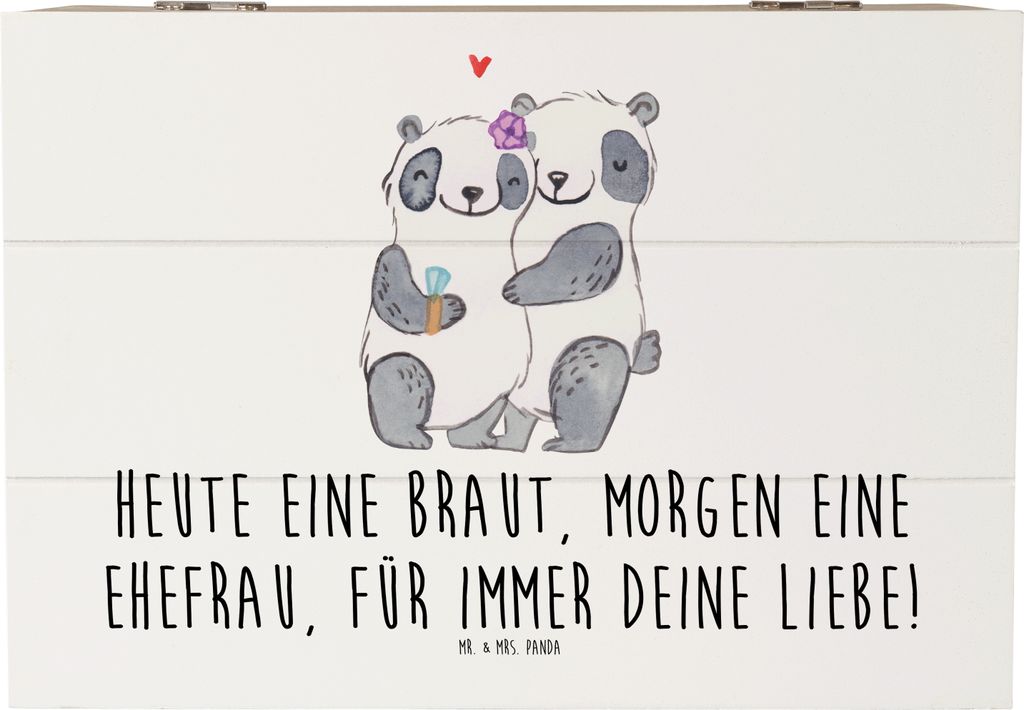 HEUTE EINE BRAUT, MORGEN EINE
EHEFRAU, FÜR IMMER DEINE LIEBE!
MR. & MRS. PANDA